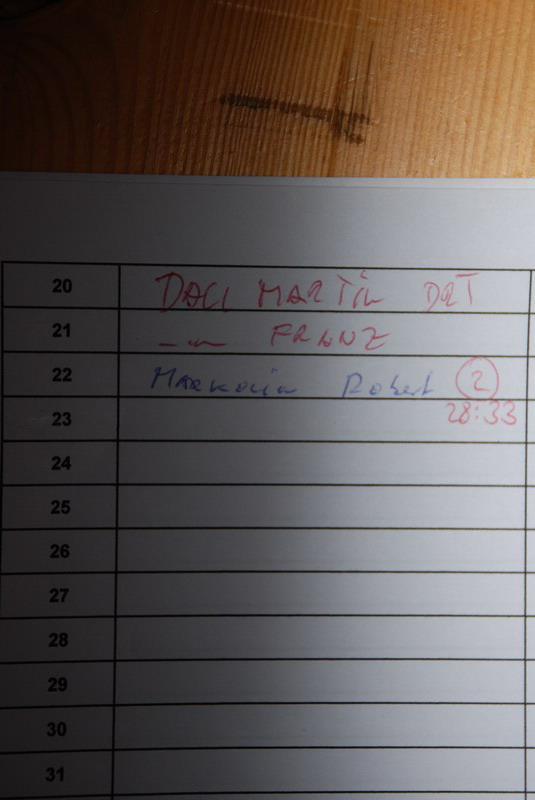 20 DACI MARTIN DRT
21 -"- FRANZ
22 Robert 2
23 28:33
24
25
26
27
28
29
30
31